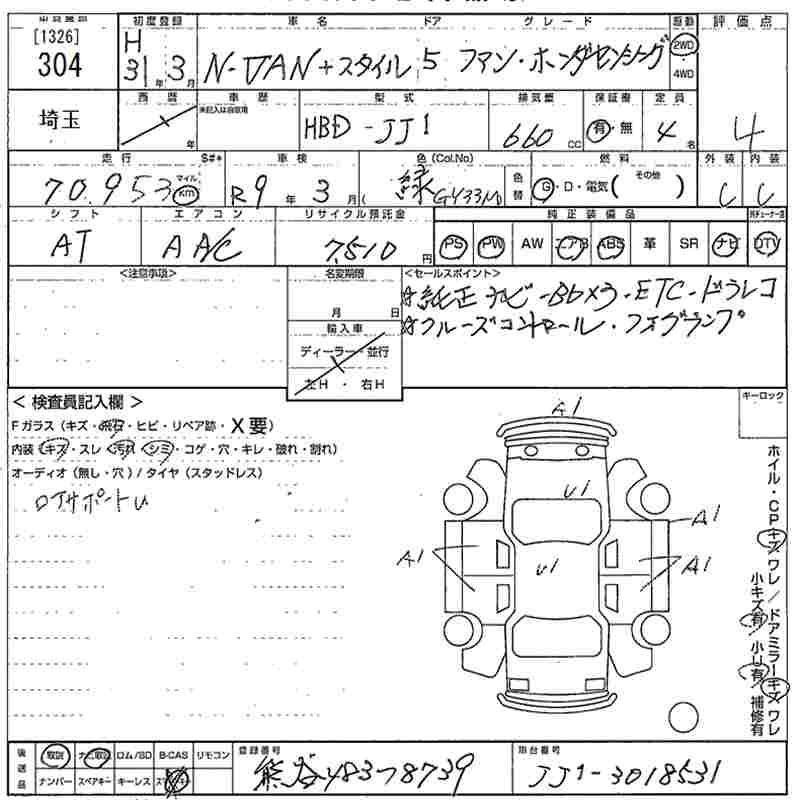 [1326]
304
初度登録 車名 ドア グレード 駆動 評価点
H 31年 3月 N-VAN+スタイル 5 ファン・ホンダセンシング 2WD・4WD
埼玉
西暦 車歴 型式 排気量 保証書 定員
年 未記入は自家用 HBD-JJ1 660cc 有・無 4名 4
走行 S#* 車検 色(Col.No) 燃料 外装 内装
70,953 マイル km R9年 3月( 緑 GY33M) 色替 G・D・電気( その他 ) C C
シフト エアコン リサイクル預託金 純正装備品
AT AA/C 7,510円 PS PW AW エアB ABS 革 SR ナビ DTV
<注意事項> 名変期限 <セールスポイント>
☆純正ナビ-Bカメラ-ETC-ドラレコ
月 日
☆クルーズコントロール・フォグランプ
輸入車
ディーラー・並行
左H・右H
<検査員記入欄> キーロック
Fガラス(キズ・飛石・ヒビ・リペア跡・X要)
内装(キズ・スレ・汚れ・シミ・コゲ・穴・キレ・破れ・割れ)
オーディオ(無し・穴)/タイヤ(スタッドレス)
ロアサポートU
A1
U1
A1
A1
U1
A1
ホイル・CP キズ ワレ/ドアミラー キズ ワレ
小キズ有 小U有/補修有
後送品 取説 ナビ取説 ロム/SD B-CAS リモコン
ナンバー スペアキー キーレス スマートキー
登録番号 熊谷483-8739
車台番号 JJ1-3018531